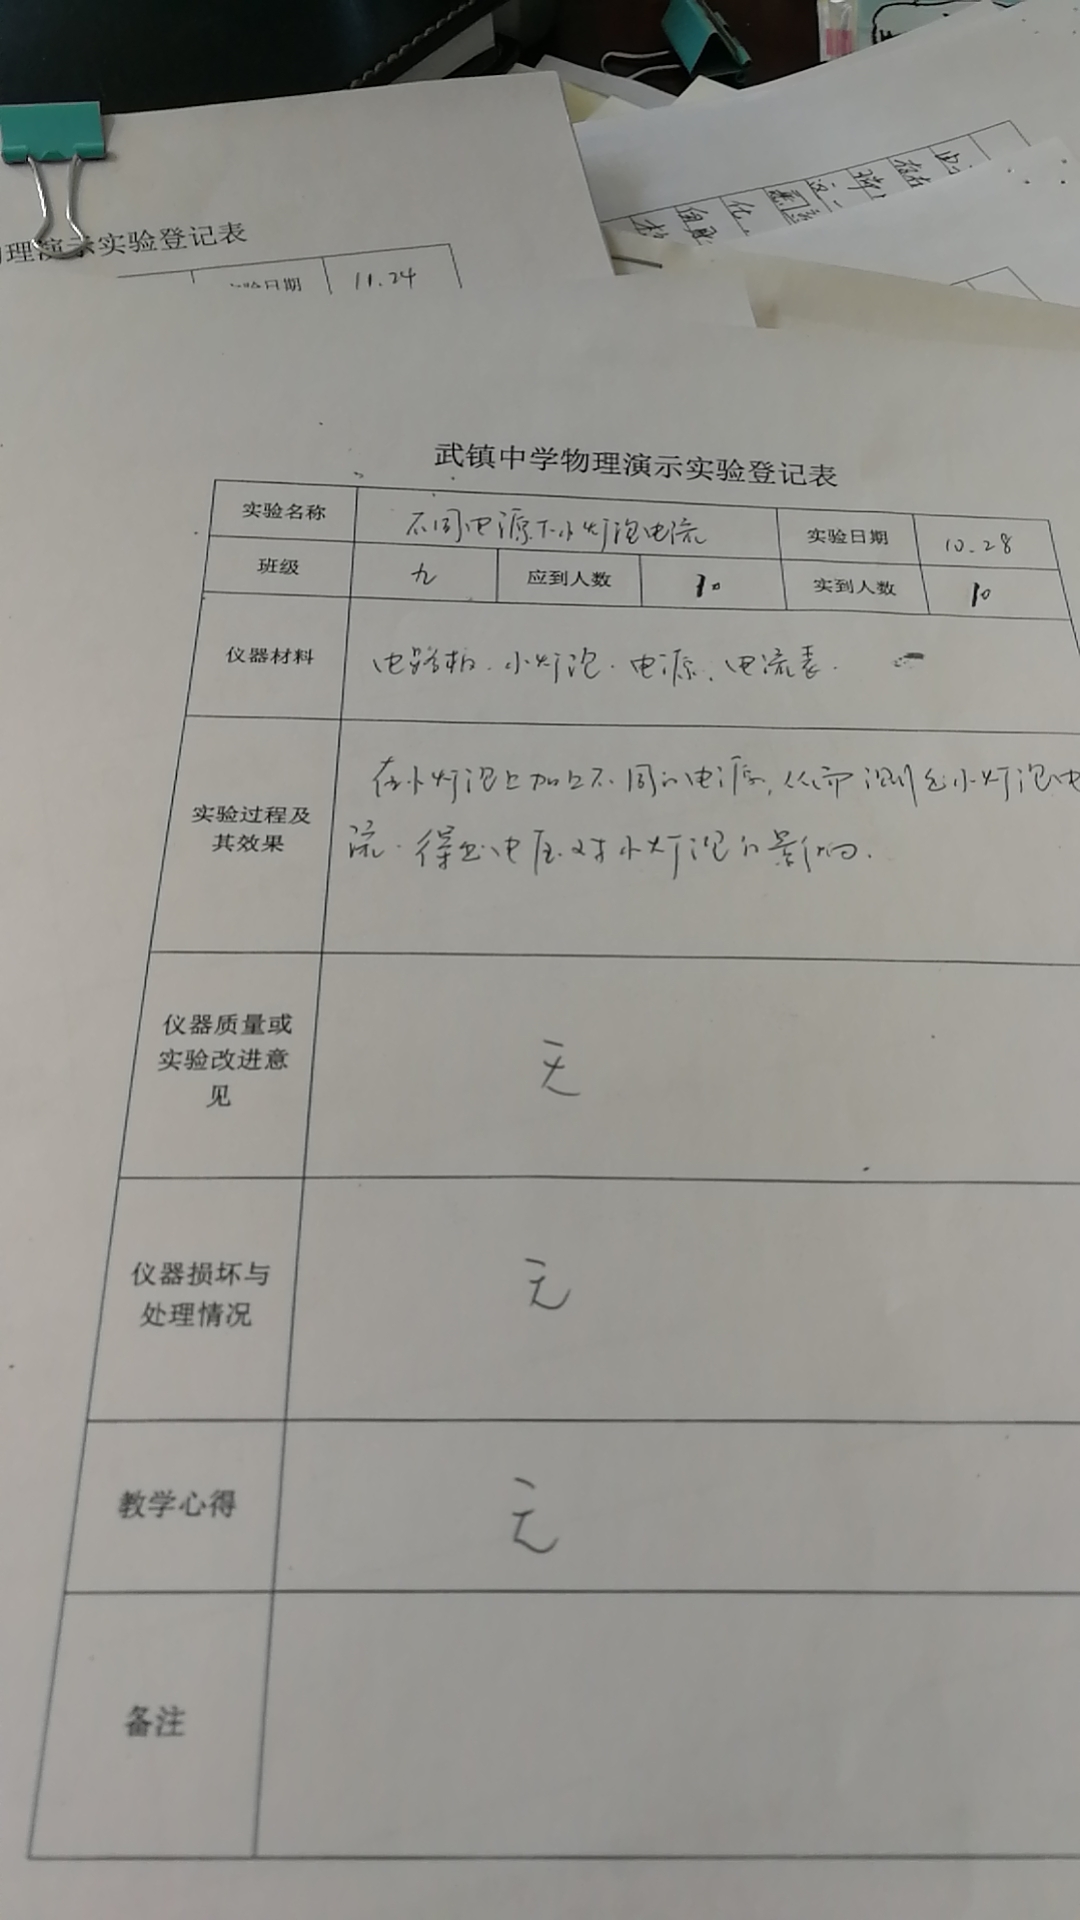 理演示实验登记表
实验日期 11.24
武镇中学物理演示实验登记表
实验名称 不同电源下小灯泡电流 实验日期 10.28
班级 九 应到人数 10 实到人数 10
仪器材料 电路板、小灯泡、电源、电流表.
实验过程及
其效果
在小灯泡上加上不同的电源,从而测出小灯泡电
流.得出电压对小灯泡的影响.
仪器质量或
实验改进意
见
无
仪器损坏与
处理情况
无
教学心得 无
备注